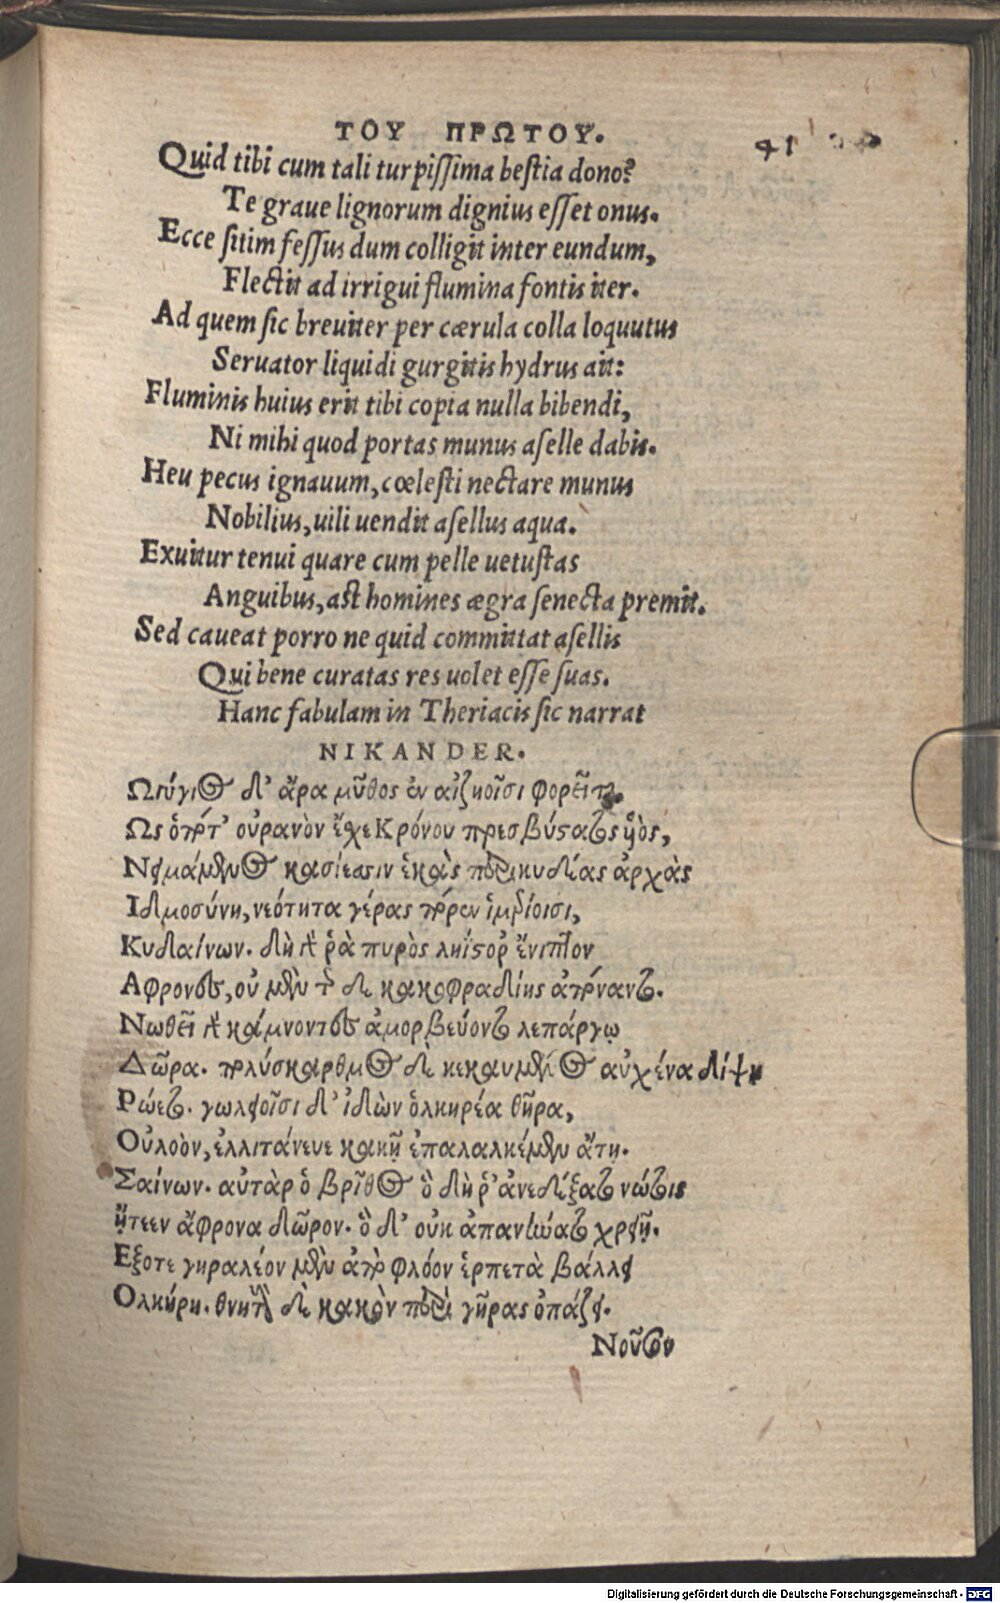 ΤΟΥ ΠΡΩΤΟΥ. 41
Quid tibi cum tali turpissima bestia dono?
Te graue lignorum dignius esset onus.
Ecce sitim fessus dum colligit inter eundum,
Flectit ad irrigui flumina fontis iter.
Ad quem sic breuiter per cærula colla loquutus
Seruator liquidi gurgitis hydrus ait:
Fluminis huius erit tibi copia nulla bibendi,
Ni mihi quod portas munus aselle dabis.
Heu pecus ignauum, cœlesti nectare munus
Nobilius, uili uendit asellus aqua.
Exuitur tenui quare cum pelle uetustas
Anguibus, ast homines ægra senecta premit.
Sed caueat porro ne quid committat asellis
Qui bene curatas res uolet esse suas.
Hanc fabulam in Theriacis sic narrat
NIKANDER.
Ωγύγιος δ' ἄρα μῦθος ἐν αἰζηοῖσι φορεῖται.
Ως ὁπότ' οὐρανὸν ἔχε Κρόνου πρεσβύτατος υἱὸς,
Νειμάμενος κασίεσσιν ἑκὰς περικυδέας ἀρχὰς
Ιδμοσύνη, νεότητα γέρας πόρεν ἡμερίοισι,
Κυδαίνων. δὴ γάρ ῥὰ πυρὸς ληΐστορ' ἔνιπτον
Αφρονες, οὐ μὲν τῆς δὲ κακοφραδίης ἀπόναντο.
Νωθεῖ γὰρ κάμνοντες ἀμορβεύοντο λεπάργῳ
Δῶρα. πολύσκαρθμος δὲ κεκαυμένος αὐχένα δίψῃ
Ρώετο. γωλειοῖσι δ' ἰδὼν ὁλκηρέα θῆρα,
Οὐλοὸν, ἐλλιτάνευε κακῇ ἐπαλαλκέμεν ἄτῃ.
Σαίνων. αὐτὰρ ὁ βρῖθος ὃ δή ῥ' ἀνεδέξατο νώτοις
ᾔτεεν ἄφρονα δῶρον. ὃ δ' οὐκ ἀπανήνατο χρειῇ.
Εξοτε γηραλέον μὲν ἀπὸ φλόον ἑρπετὰ βάλλει
Ολκήρη. θνητοὺς δὲ κακὸν περὶ γῆρας ὀπάζει.
Νοῦσον
Digitalisierung gefördert durch die Deutsche Forschungsgemeinschaft - DFG